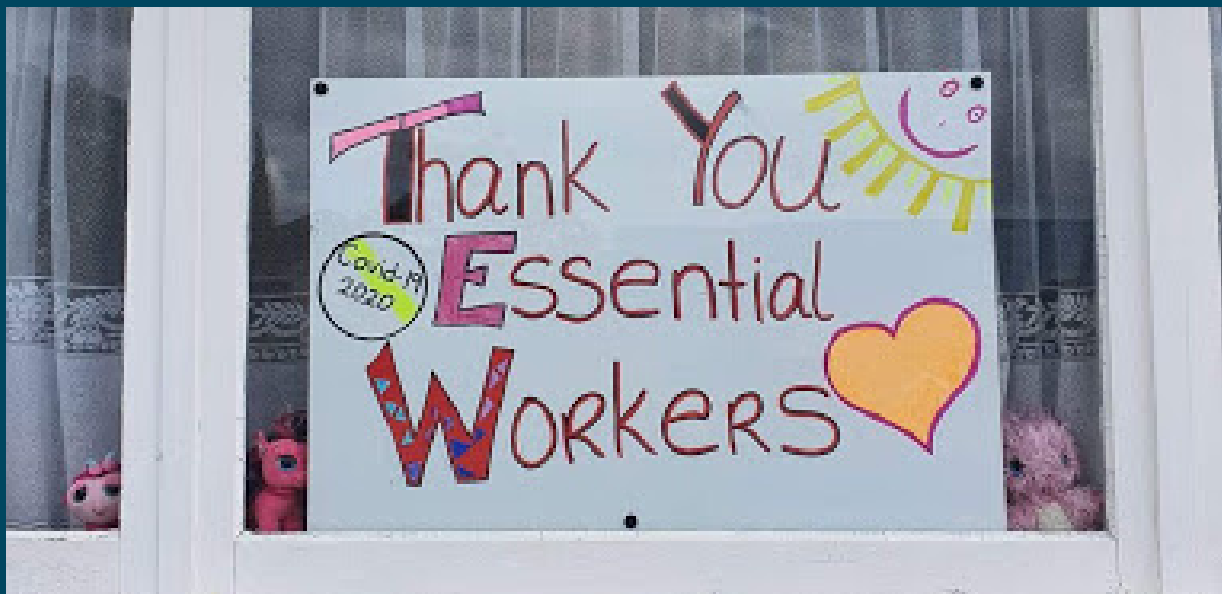 Thank You
Covid-19
2020
Essential
Workers